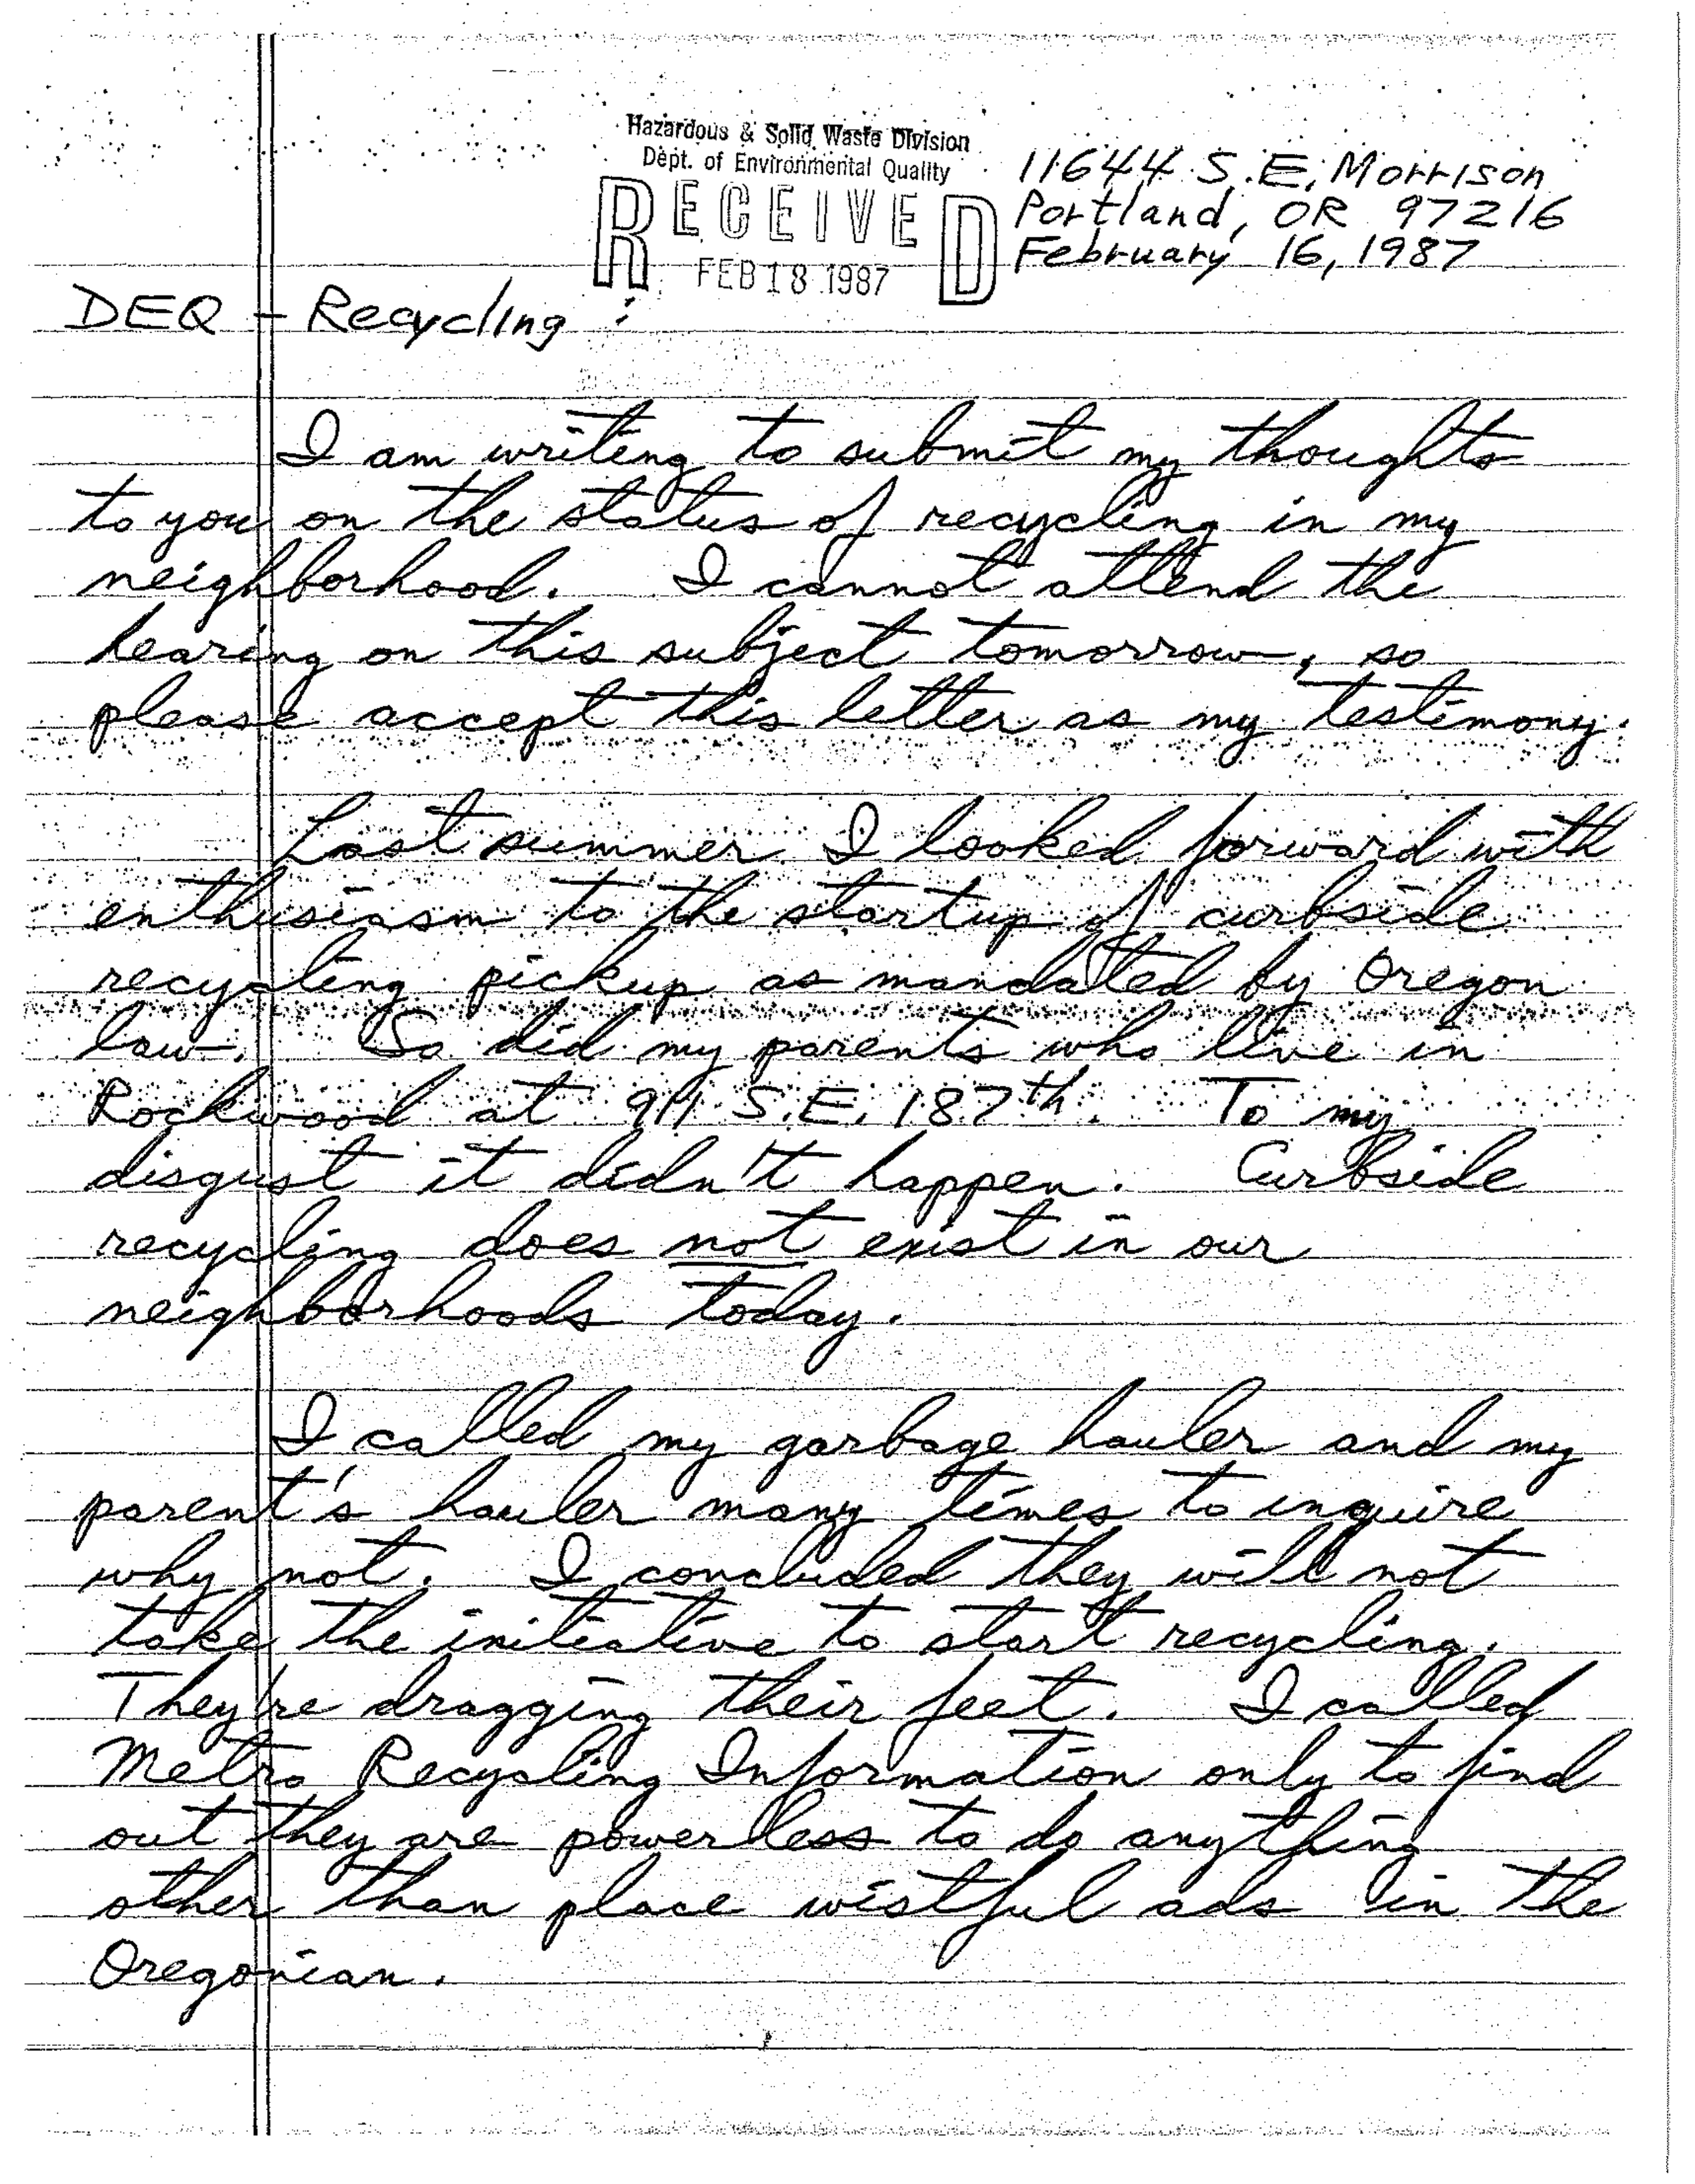 Hazardous & Solid Waste Division
Dept. of Environmental Quality
RECEIVED
FEB 18 1987
11644 S.E. Morrison
Portland, OR 97216
February 16, 1987
DEQ - Recycling :
I am writing to submit my thoughts
to you on the status of recycling in my
neighborhood. I cannot attend the
hearing on this subject tomorrow, so
please accept this letter as my testimony.
Last summer I looked forward with
enthusiasm to the startup of curbside
recycling pickup as mandated by Oregon
law. So did my parents who live in
Rockwood at 911 S.E. 187th. To my
disgust it didn't happen. Curbside
recycling does not exist in our
neighborhoods today.
I called my garbage hauler and my
parent's hauler many times to inquire
why not. I concluded they will not
take the initiative to start recycling.
They're dragging their feet. I called
Metro Recycling Information only to find
out they are powerless to do anything
other than place wistful ads in the
Oregonian.